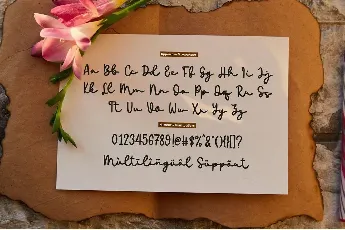 Aa Bb Cc Dd Ee Ff Gg Hh Ii Jj
Kk Ll Mm Nn Oo Pp Qq Rr Ss
Tt Uu Vv Ww Xx Yy Zz
0123456789!@#$%^&*(){}[]?
Mùltilingüâl Süppôut